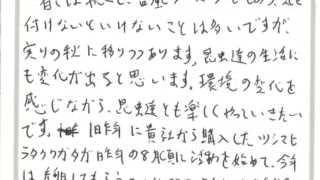 付けないといけないことは多いですが、
実りの秋に移りつつあります。昆虫達の生活に
も変化が出ると思います。環境の変化を
感じながら、昆虫達とも楽しくやっていきたい
です。昨年に貴社から購入したツシマヒ
ラタクワガタが昨年の8月頃に活動を始めて、今年